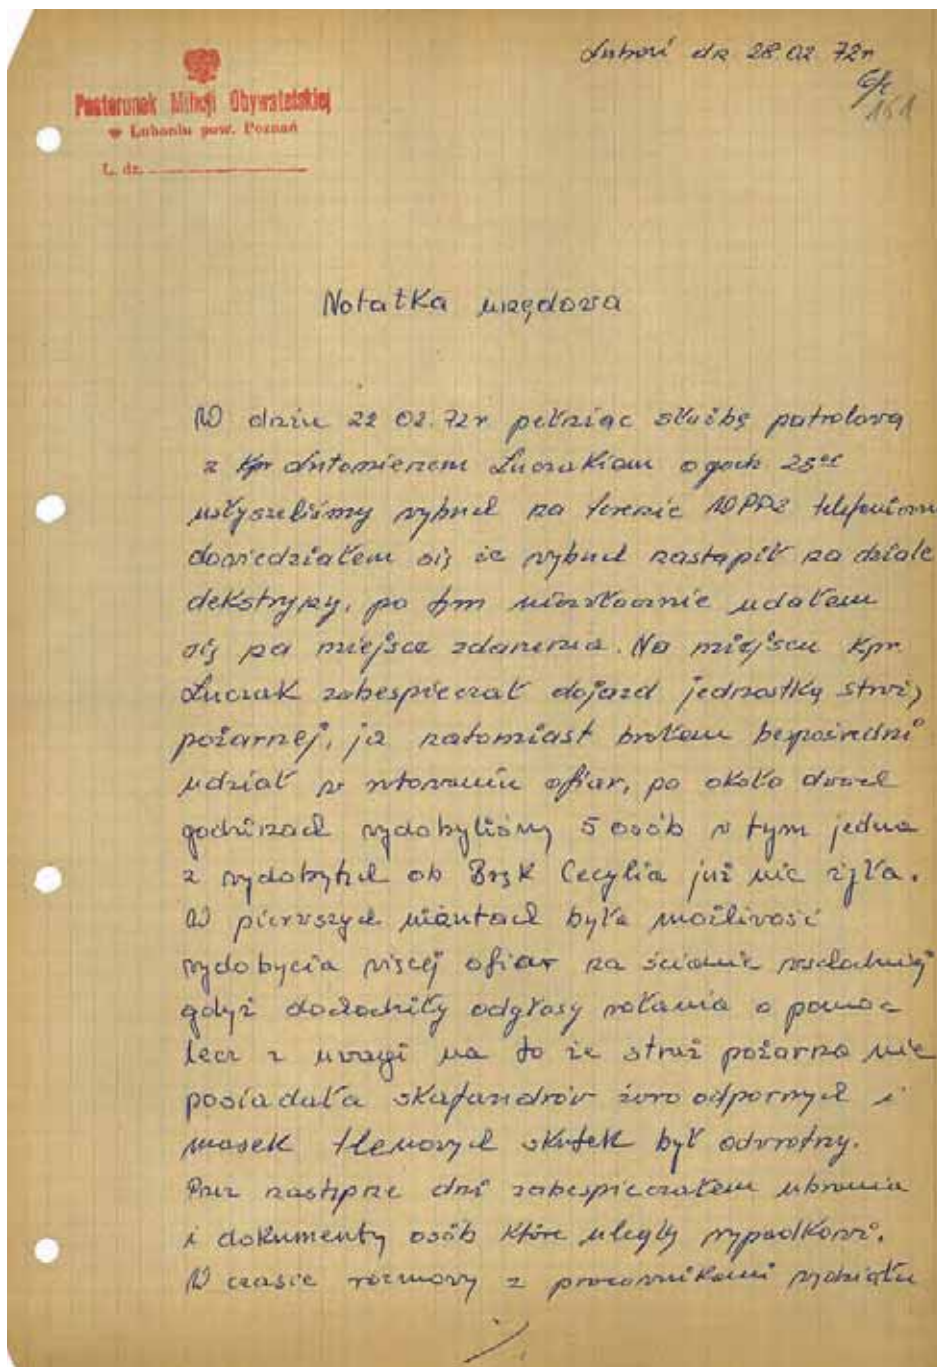 Luboń dn. 28.02.72r
161
Posterunek Milicji Obywatelskiej
w Luboniu pow. Poznań
L. dz.
Notatka urzędowa
W dniu 22 02.72r pełniąc służbę patrolową
z kpr Antonienem Luczakiem o godz
usłyszeliśmy wybuch na terenie WPPZ telefonicznie
dowiedziałem się że wybuch nastąpił na dziale
dekstryny, po tym niezwłocznie udałem
się na miejsce zdarzenia. Na miejscu kpr.
Luczak zabespieczał dojazd jednostką straży
pożarnej, ja natomiast brałem bezpośredni
udział w ratowaniu ofiar, po około dwóch
godzinach wydobyliśmy 5 osób w tym jedna
z wydobytych ob Bąk Cecylia już nie żyła.
W pierwszych minutach była możliwość
wydobycia więcej ofiar na ścianie wschodniej
gdyż dochodziły odgłosy wołania o pomoc
lecz z uwagi na to że straż pożarna nie
posiadała skafandrów żaroodpornych i
masek tlenowych skutek był odwrotny.
Przez następne dni zabespieczałem ubrania
i dokumenty osób które uległy wypadkowi.
W czasie rozmowy z pracownikami wydziału